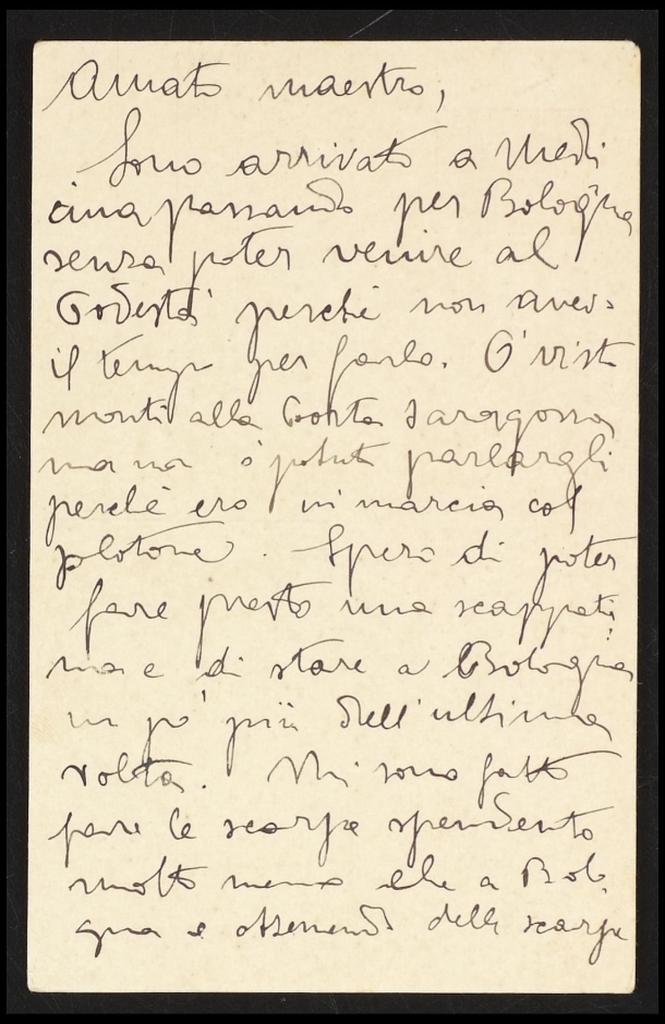 Amato maestro,
Sono arrivato a Medi
cina passando per Bologna
senza poter venire al
Podestà perché non avevo
il tempo per farlo. O' visto
Monti alla Porta Saragozza
ma non ò potuto parlargli
perchè ero in marcia col
plotone. Spero di poter
fare presto una scappati
na e di stare a Bologna
un po' più dell'ultima
volta. Mi sono fatto
fare le scarpe spendento
molto meno che a Bolo
gna e ottenendo delle scarpe